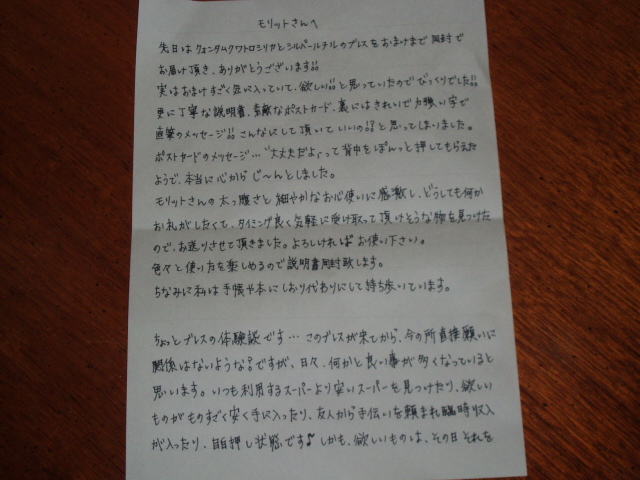 モリットさんへ
先日は クォンタムクワトロシリカとシルバールチルのブレスをおまけまで同封で
お届け頂き、ありがとうございます!!
実はおまけすごく気に入っていて、欲しい!!と思っていたのでびっくりでした!!
更に丁寧な説明書、素敵なポストカード、裏にはきれいで力強い字で
直筆のメッセージ!!こんなにして頂いていいの!?と思ってしまいました。
ポストカードのメッセージ…"大丈夫だよ"って背中をぽんっと押してもらえた
ようで、本当に心からじ〜んとしました。
モリットさんの太っ腹さと細やかなお心使いに感激し、どうしても何か
お礼がしたくて、タイミング良く気軽に受け取って頂けそうな物を見つけた
ので、お送りさせて頂きました。よろしければお使い下さい。
色々と使い方を楽しめるので説明書同封致します。
ちなみに私は手帳や本にしおり代わりにして持ち歩いています。
ちょっとブレスの体験談です…このブレスが来てから、今の所直接願いに
関係はないような?ですが、日々、何かと良い事が多くなっていると
思います。いつも利用するスーパーより安いスーパーを見つけたり、欲しい
ものがものすごく安く手に入ったり、友人から手伝いを頼まれ臨時収入
が入ったり、目白押し状態です♪しかも、欲しいものは、その日それを